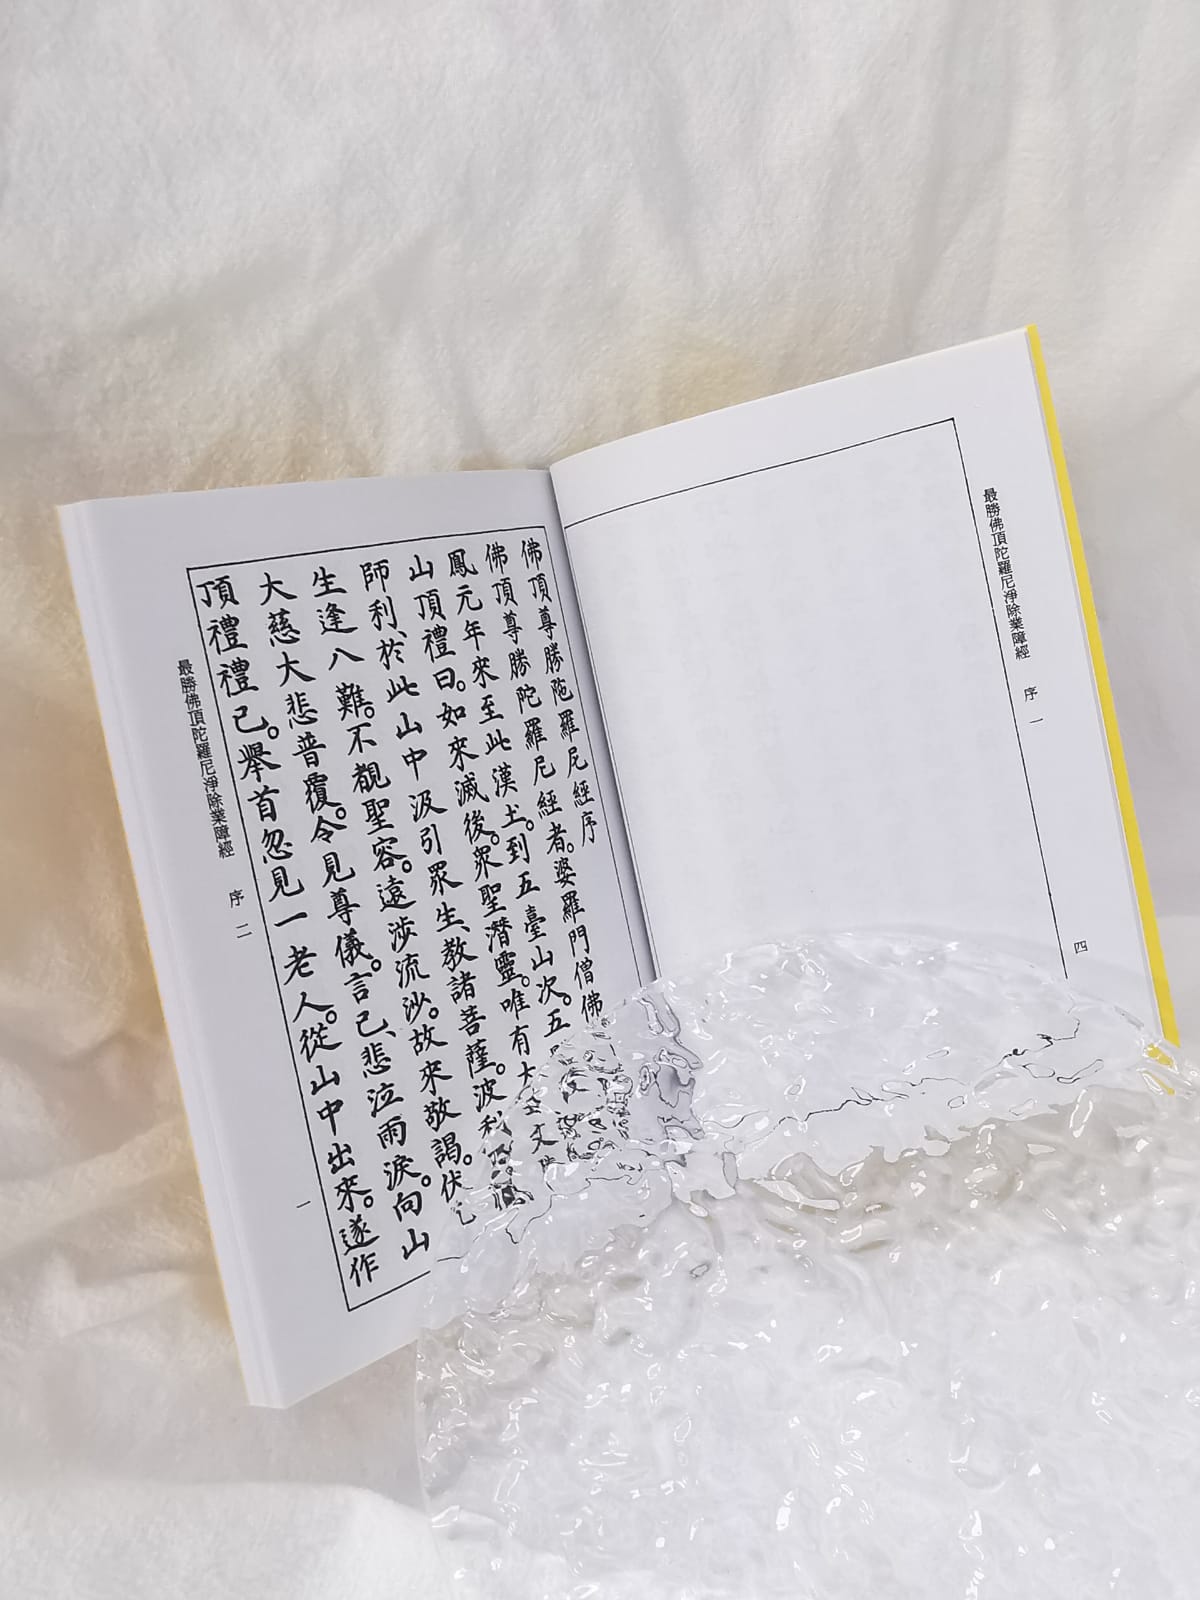 最勝佛頂陀羅尼淨除業障經 序 一
四
佛頂尊勝陁羅尼經序
佛頂尊勝陀羅尼經者。婆羅門僧佛
鳳元年來至此漢土。到五臺山次。五
山頂禮曰。如來滅後。衆聖潛靈。唯有大
師利、於此山中汲引眾生、教諸菩薩。波利
生逢八難。不覩聖容。遠涉流沙。故來敬謁。伏
大慈大悲普覆。令見尊儀。言已、悲泣雨淚。向山
頂禮禮已。舉首忽見一老人。從山中出來。遂作
最勝佛頂陀羅尼淨除業障經 序 二
一